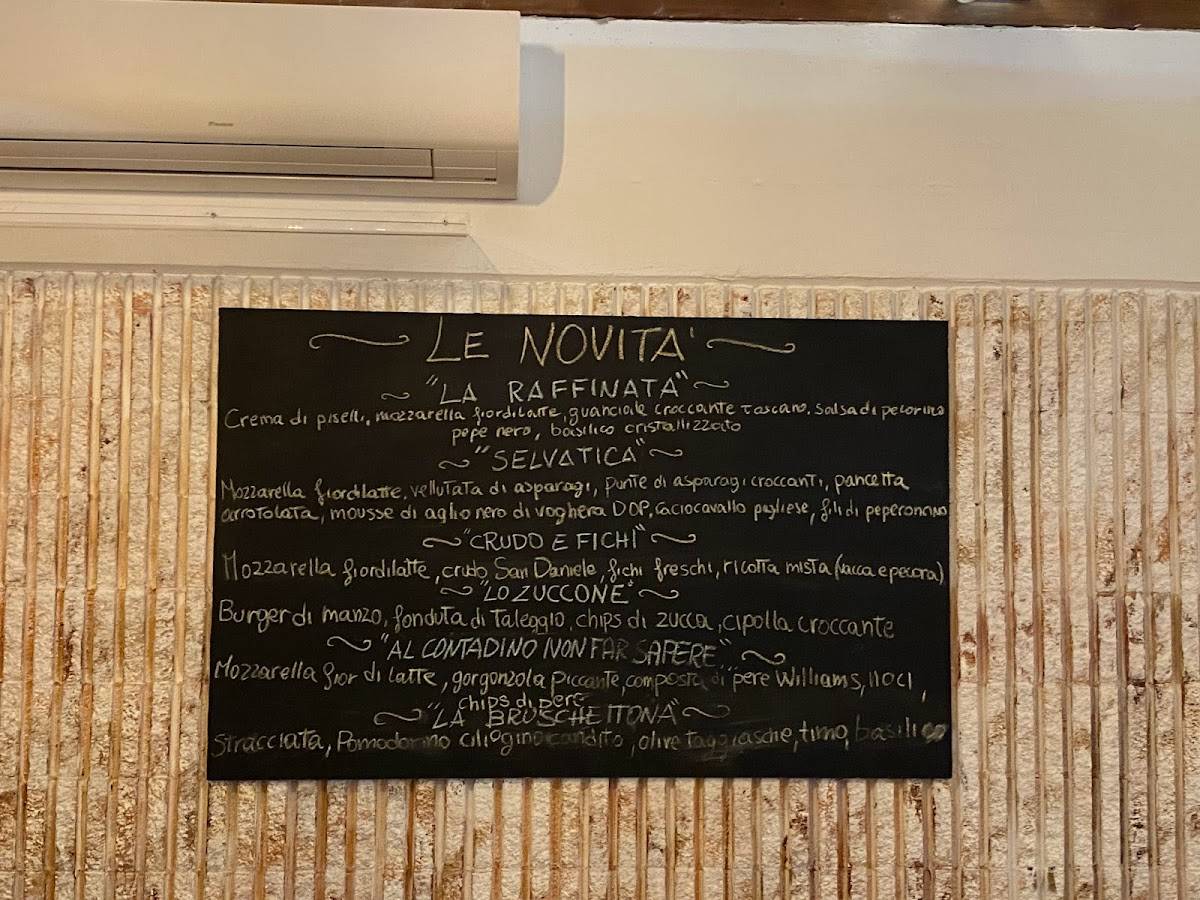 LE NOVITA'
"LA RAFFINATA"
Crema di piselli, mozzarella fiordilatte, guanciale croccante Toscano, Salsa di pecorino
pepe nero, basilico cristallizzato
"SELVATICA"
Mozzarella fiordilatte, vellutata di asparagi, punte di asparagi croccanti, pancetta
arrotolata, mousse di aglio nero di voghera DOP, caciocavallo pugliese, fili di peperoncino
"CRUDO E FICHI"
Mozzarella fiordilatte, crudo San Daniele, fichi freschi, ricotta mista (vacca e pecora)
"LO ZUCCONE"
Burger di manzo, fonduta di Taleggio, chips di zucca, cipolla croccante
"AL CONTADINO NON FAR SAPERE.."
Mozzarella fior di latte, gorgonzola piccante, composta di pere Williams, noci,
chips di pere
"LA BRUSCHETTONA"
Stracciata, Pomodorino ciliegino candito, olive taggiasche, timo, basilico